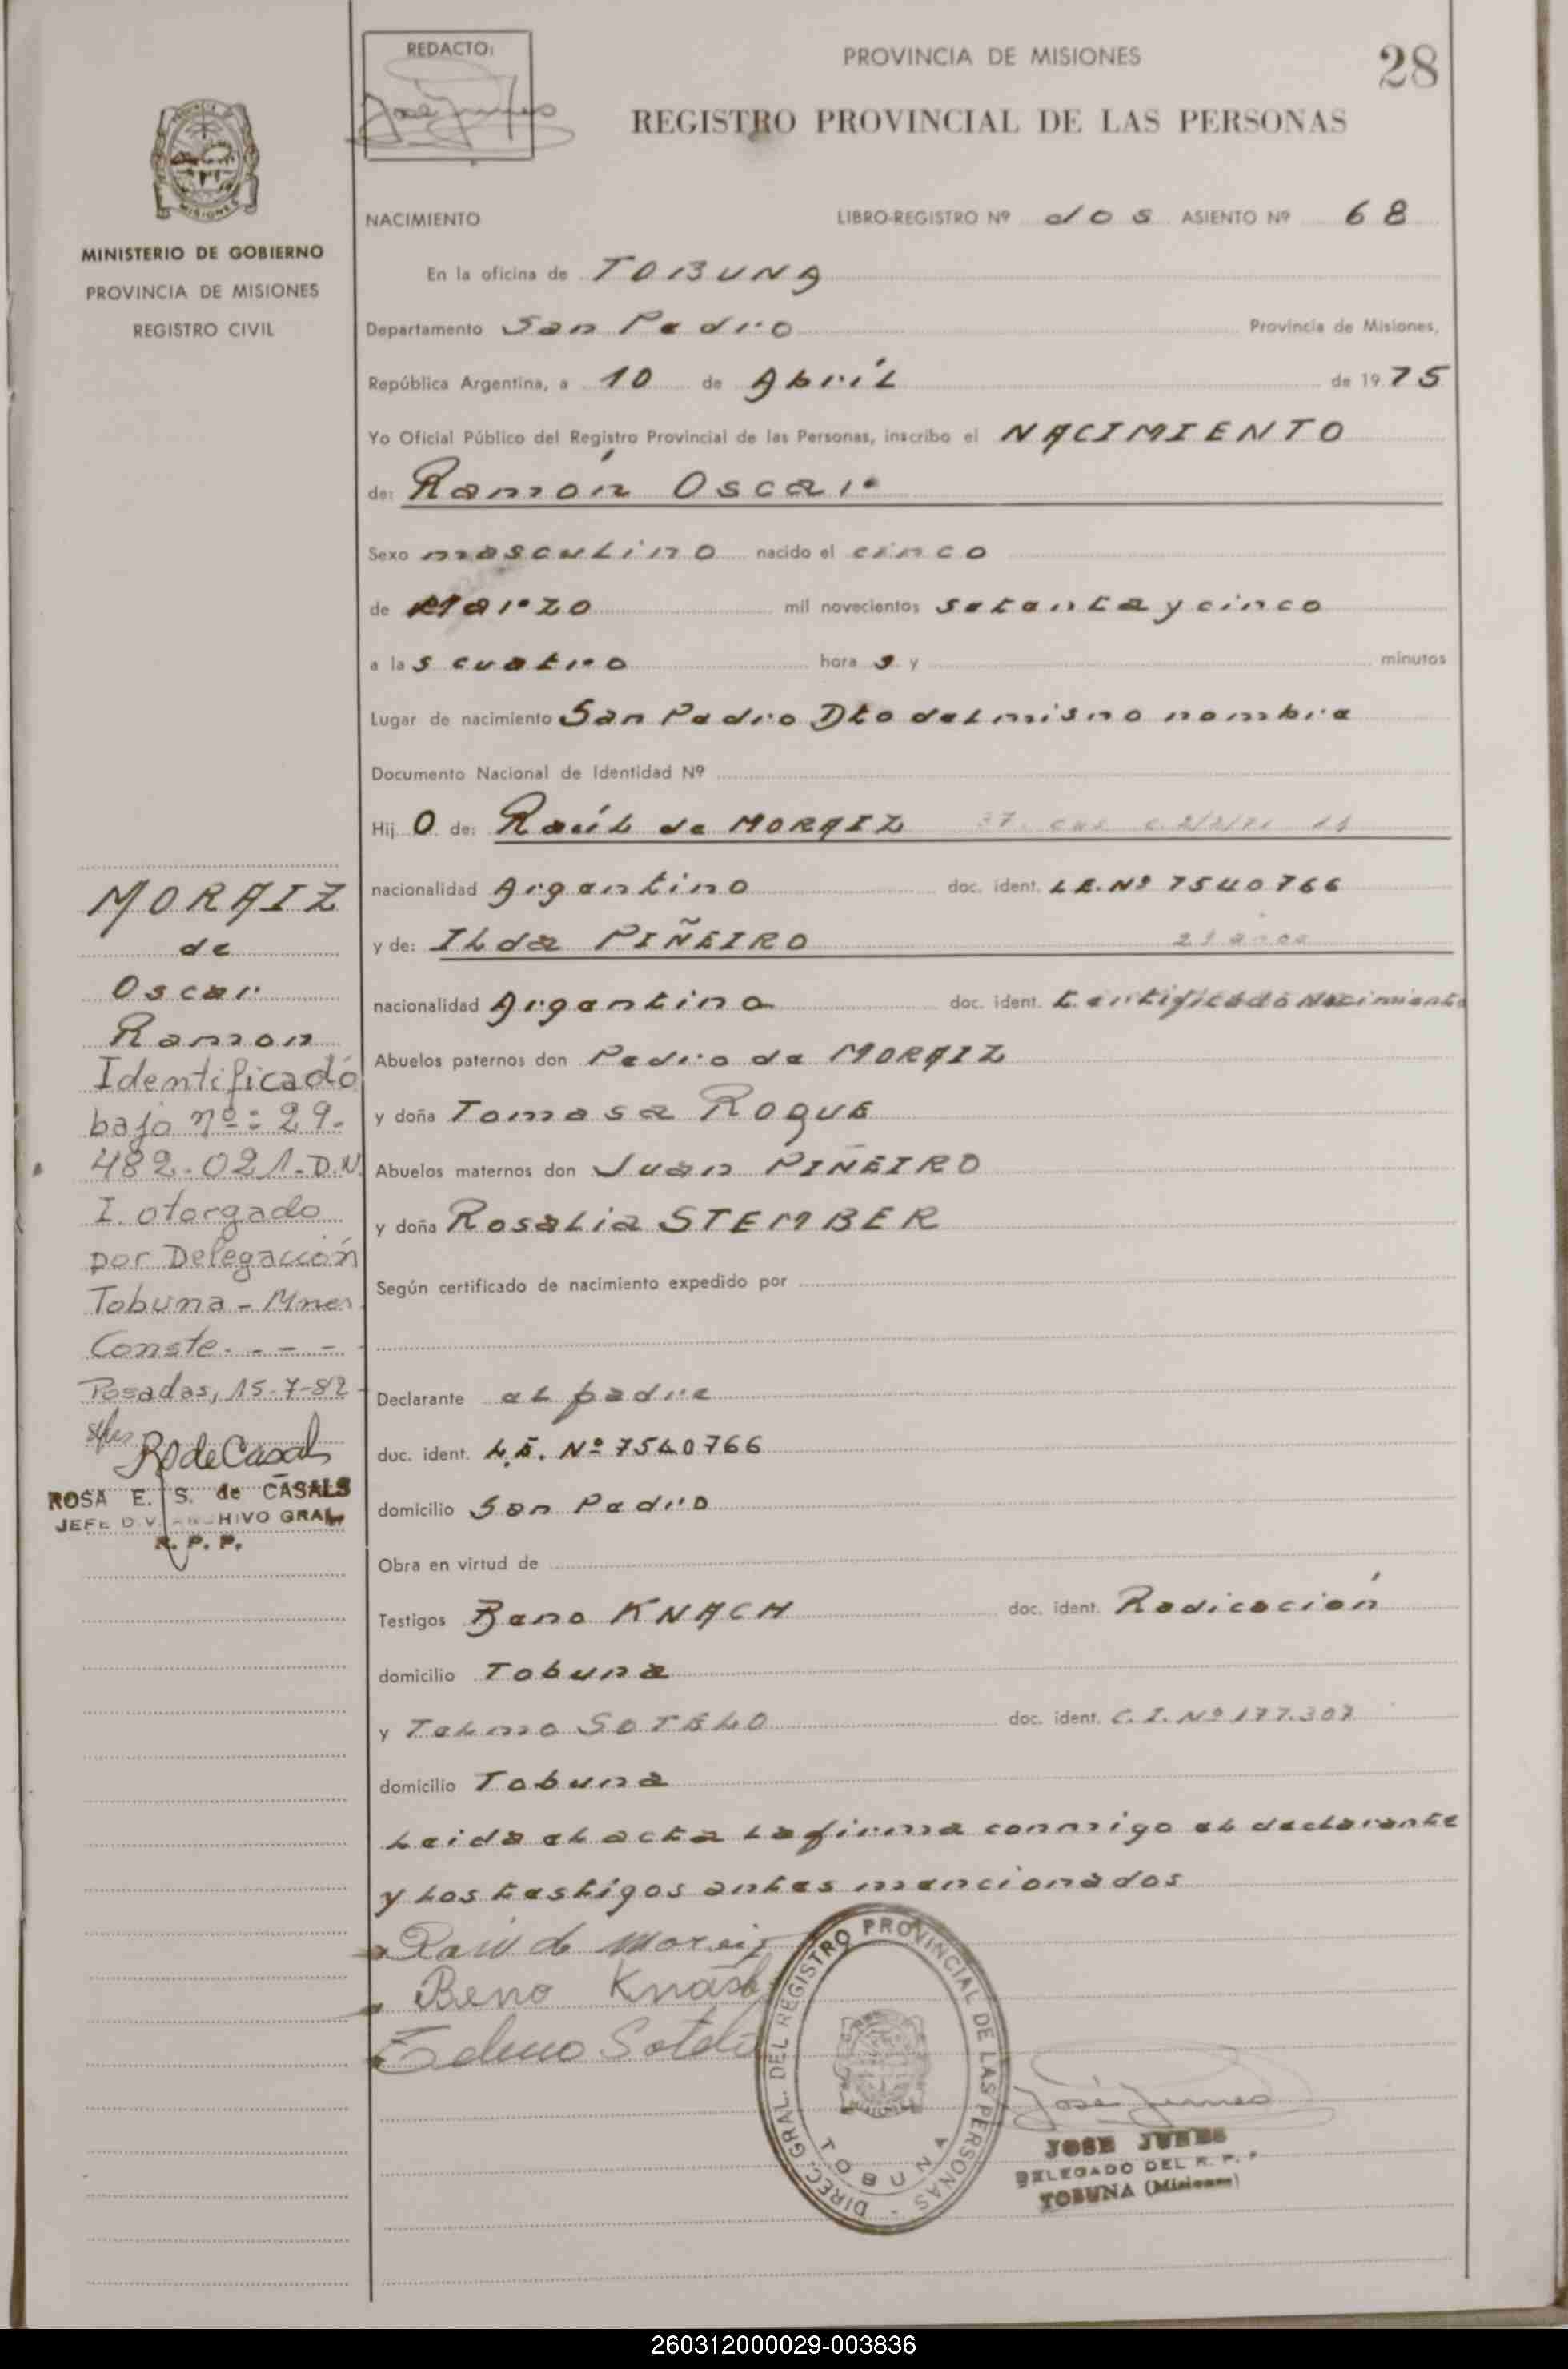 REDACTO:
PROVINCIA DE MISIONES
28
REGISTRO PROVINCIAL DE LAS PERSONAS
MISIONES
MINISTERIO DE GOBIERNO
PROVINCIA DE MISIONES
REGISTRO CIVIL
NACIMIENTO LIBRO-REGISTRO Nº dos ASIENTO Nº 68
En la oficina de TOBUNA
Departamento San Pedro Provincia de Misiones,
República Argentina, a 10 de Abril de 1975
Yo Oficial Público del Registro Provincial de las Personas, inscribo el NACIMIENTO
de: Ramón Oscar
Sexo masculino nacido el cinco
de Marzo mil novecientos setenta y cinco
a las cuatro horas y minutos
Lugar de nacimiento San Pedro Dto del mismo nombre
Documento Nacional de Identidad Nº
Hijo de: Raúl de MORAIZ
nacionalidad Argentino doc. ident. L.E. Nº 7540766
y de: Ilda PIÑEIRO
nacionalidad Argentina doc. ident. Certificado Nacimiento
Abuelos paternos don Pedro de MORAIZ
y doña Tomasa ROQUE
Abuelos maternos don Juan PIÑEIRO
y doña Rosalia STEMBER
Según certificado de nacimiento expedido por
Declarante el padre
doc. ident. L.E. Nº 7540766
domicilio San Pedro
Obra en virtud de
Testigos Beno KNACH doc. ident. Radicación
domicilio Tobuna
y Telmo SOTELO doc. ident. C.I. Nº 177.307
domicilio Tobuna
Leida el acta la firma conmigo el declarante
y los testigos antes mencionados
MORAIZ
de
Oscar
Ramon
Identificado
bajo nº: 29.
482.021-D.N.
I. otorgado
por Delegación
Tobuna - Mnes
Conste. - - -
Posadas, 15-7-82
R de Casals
ROSA E. S. de CASALS
JEFE DIV. ARCHIVO GRAL.
R. P. P.
Raul de Moraiz
Beno Knach
Telmo Sotelo
DIREC. GRAL. DEL REGISTRO PROVINCIAL DE LAS PERSONAS -
TOBUNA
José Junes
JOSE JUNES
DELEGADO DEL R. P. P.
TOBUNA (Misiones)
260312000029-003836